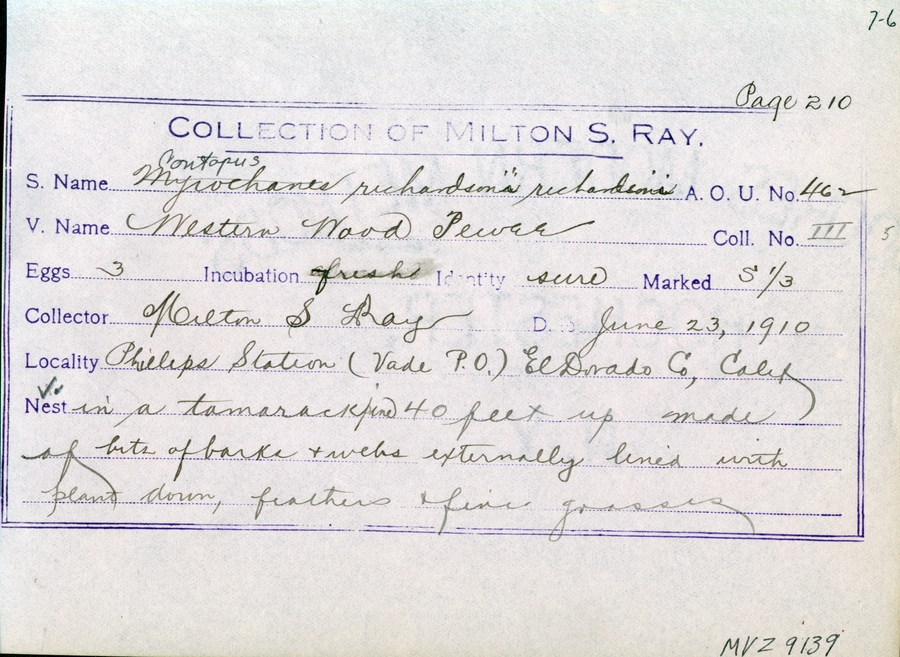 7-6
Page 210
COLLECTION OF MILTON S. RAY.
Contopus
S. Name Myiochanes richardsonii richardsonii A. O. U. No. 462
V. Name Western Wood Pewee Coll. No. III 5
Eggs 3 Incubation fresh Identity sure Marked 51/3
Collector Milton S Ray D. June 23, 1910
Locality Phillips Station (Vade P.O.) El Dorado Co, Calif
Nest in a tamarack pine 40 feet up made
of bits of barks + webs externally lined with
plant down, feathers & fine grasses
MVZ 9139